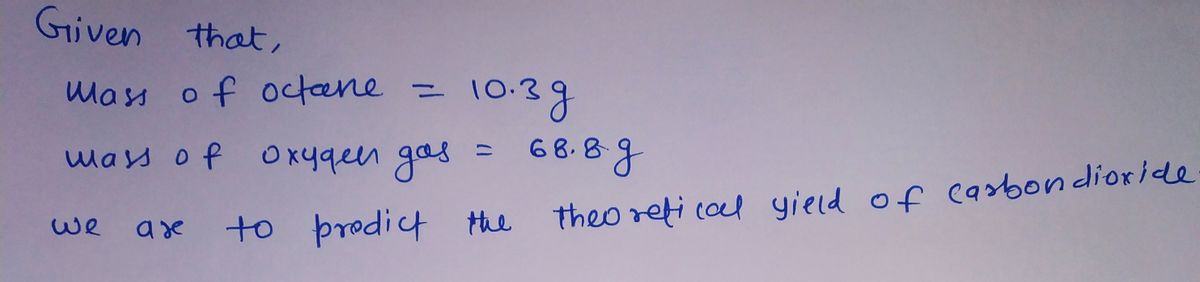 Given that,
Mass of octane = 10.3 g
mass of oxygen gas = 68.8 g
we are to predict the theoretical yield of carbondioxide.